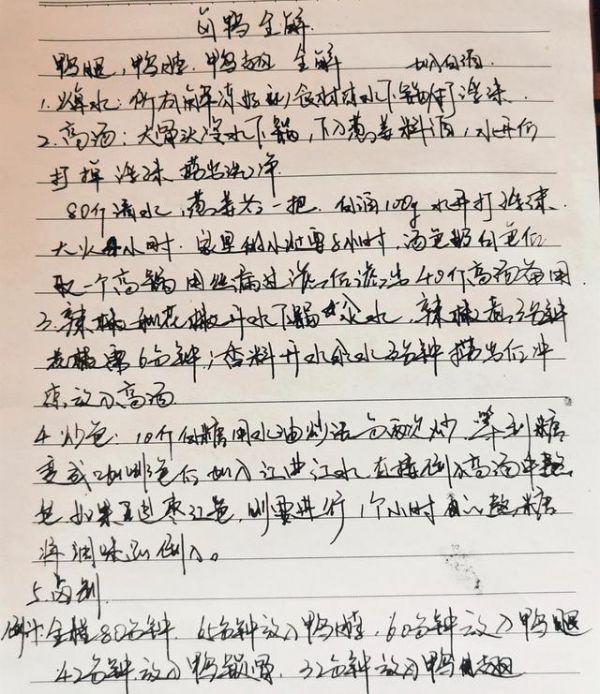 卤鸭全解
鸭腿,鸭脖,鸭翅 全解 加白酒
1.焯水:所有解冻好的食材凉水下锅打浮沫
2.高汤:大骨头冷水下锅,下入葱姜料酒,水开后
打掉浮沫 捞出洗净
80斤清水,葱姜各一把 白酒100g 水开打浮沫
大火4小时 家里的小灶要8小时,汤色奶白色后
取一个高锅用丝漏过滤后滤出40斤高汤备用
3.辣椒和花椒开水下锅氽水,辣椒煮3分钟
花椒需6分钟;香料开水氽水3分钟捞出后冲
凉放入高汤
4.炒色:10斤白糖用水油炒法分两次炒 等到糖
变成 色后加入 水 直接倒入高汤中
色 如果 枣红色,则要进行1个小时 糖
将调味 倒入。
5.卤制
倒计 全程80分钟 65分钟放入鸭脖,60分钟放入鸭腿
42分钟放入鸭锁骨,32分钟放入鸭翅